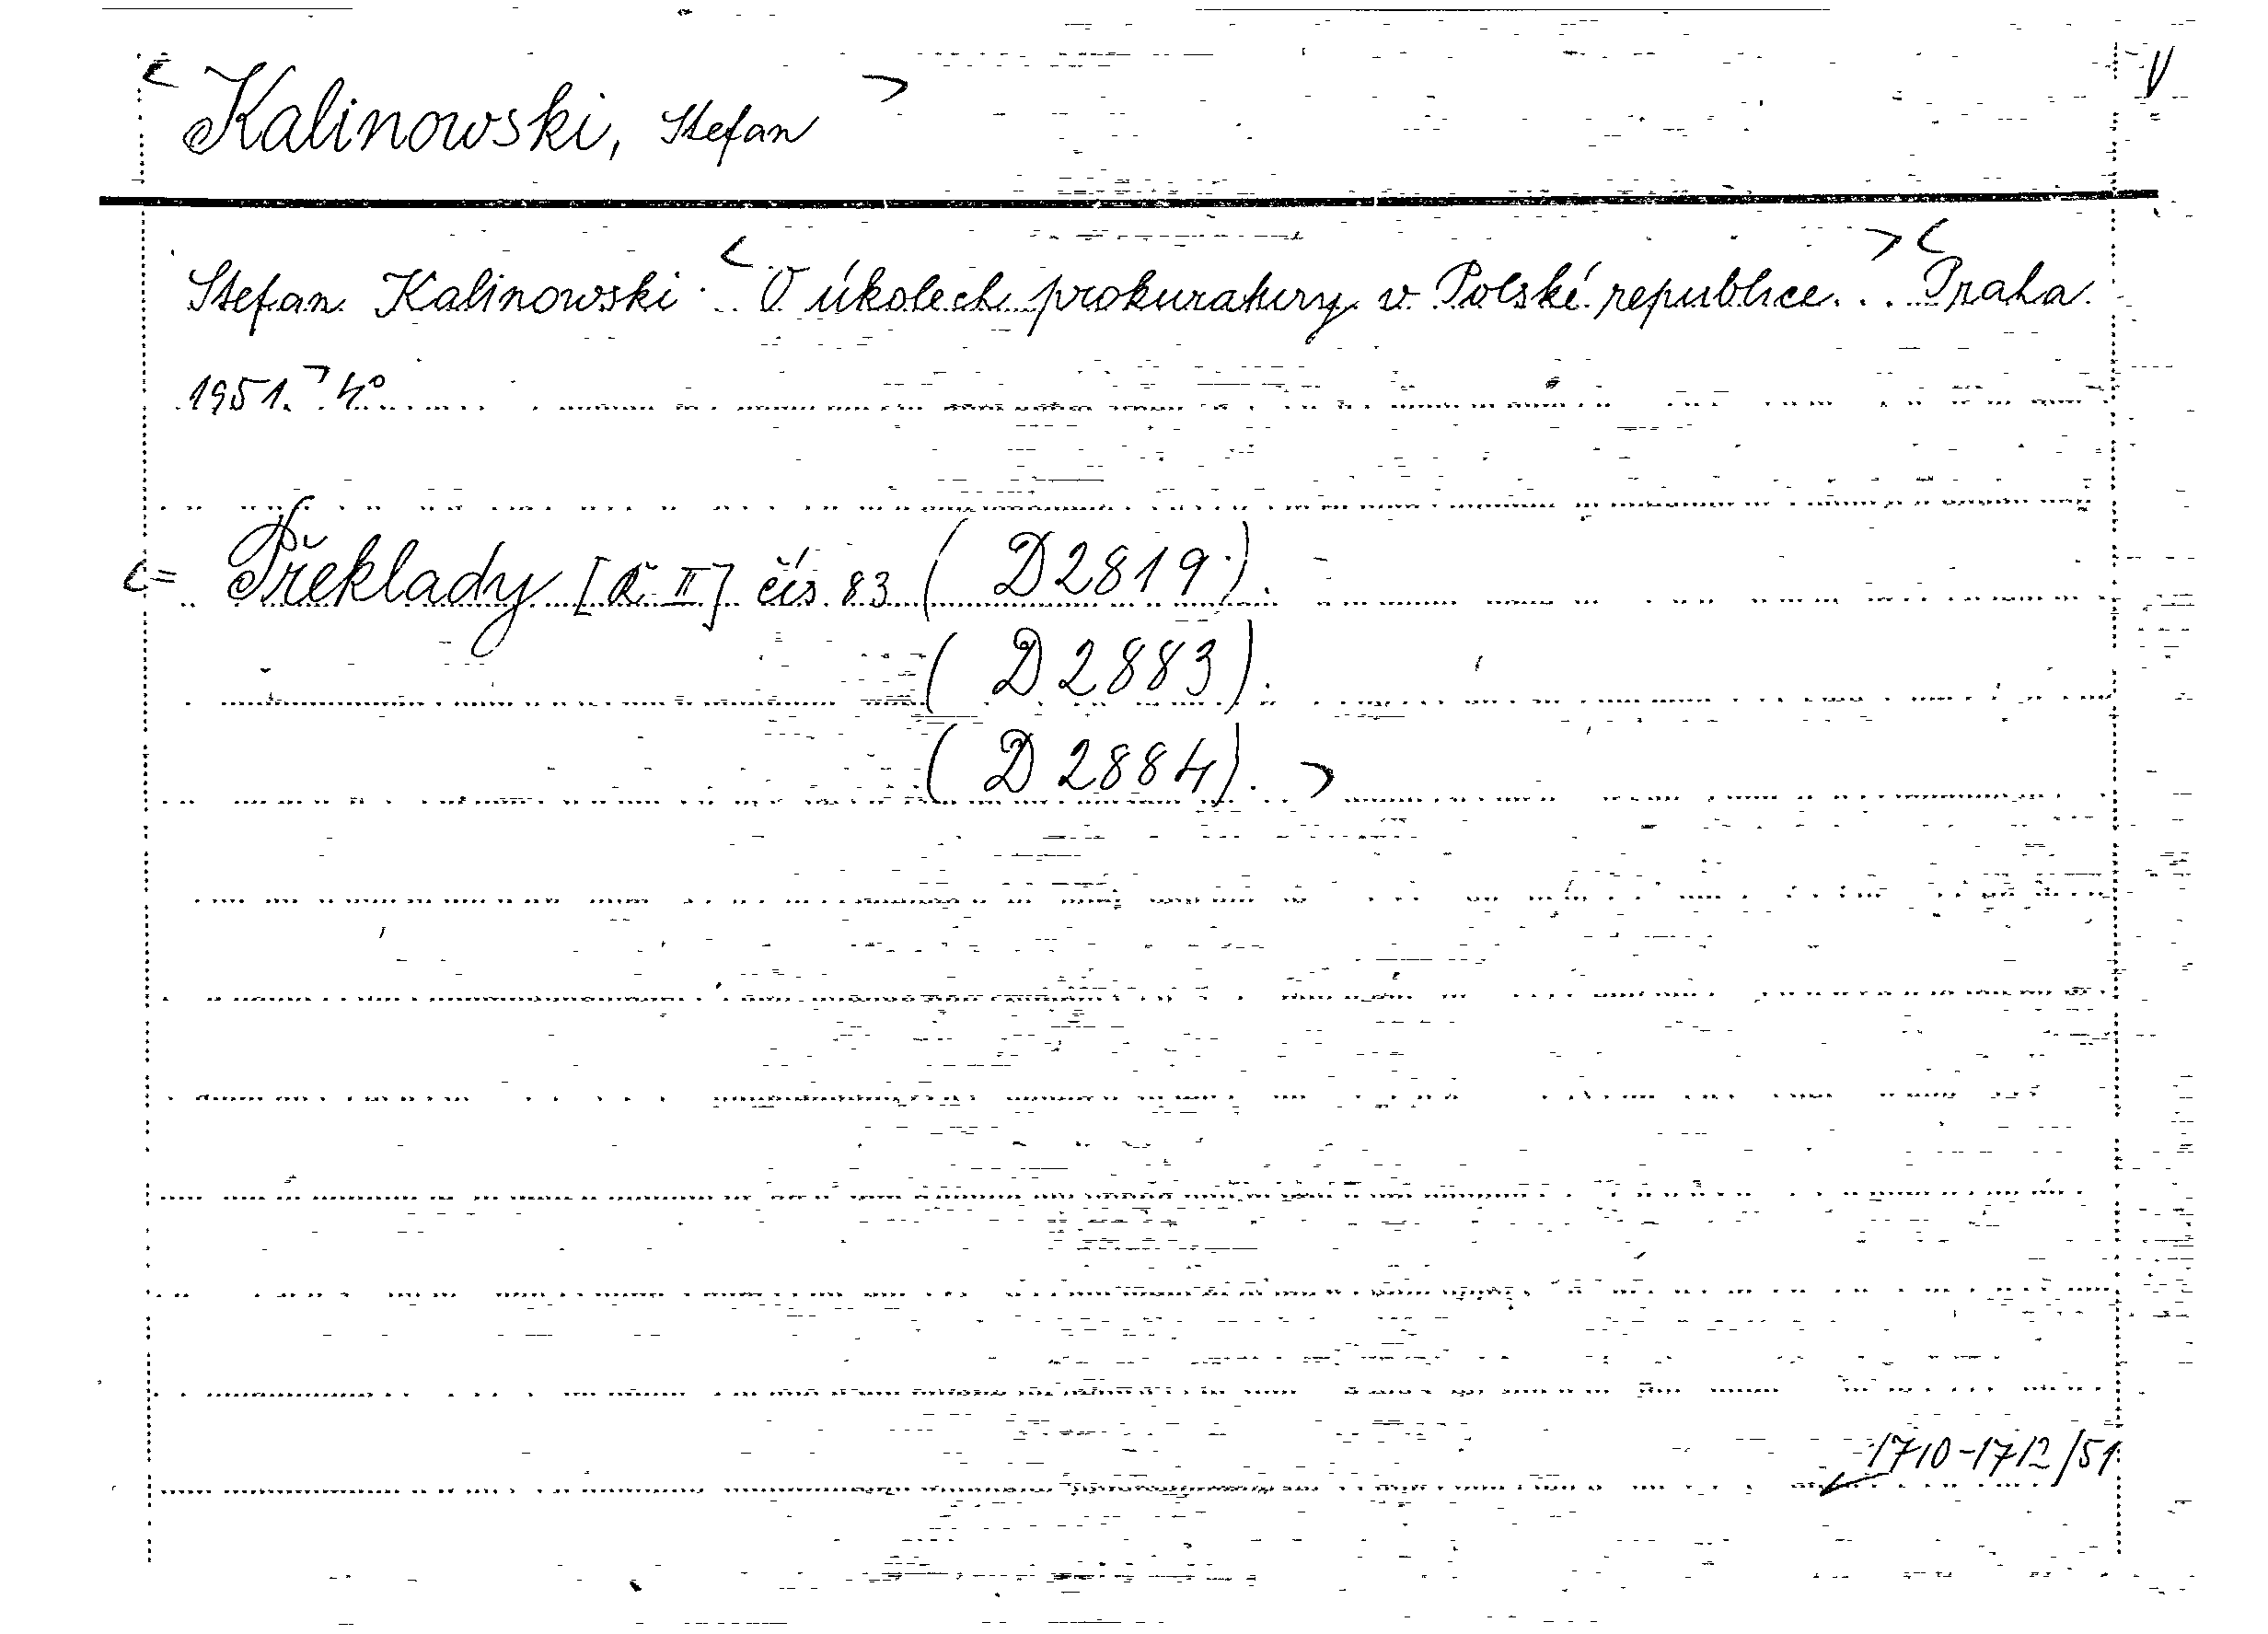 Kalinowski, Stefan
Stefan Kalinowski: O úkolech prokuratury v Polské republice... Praha
1951. 4°
= Překlady [Ř. II] čís. 83 (D2819).
(D2883).
(D2884).
1710-1712/51